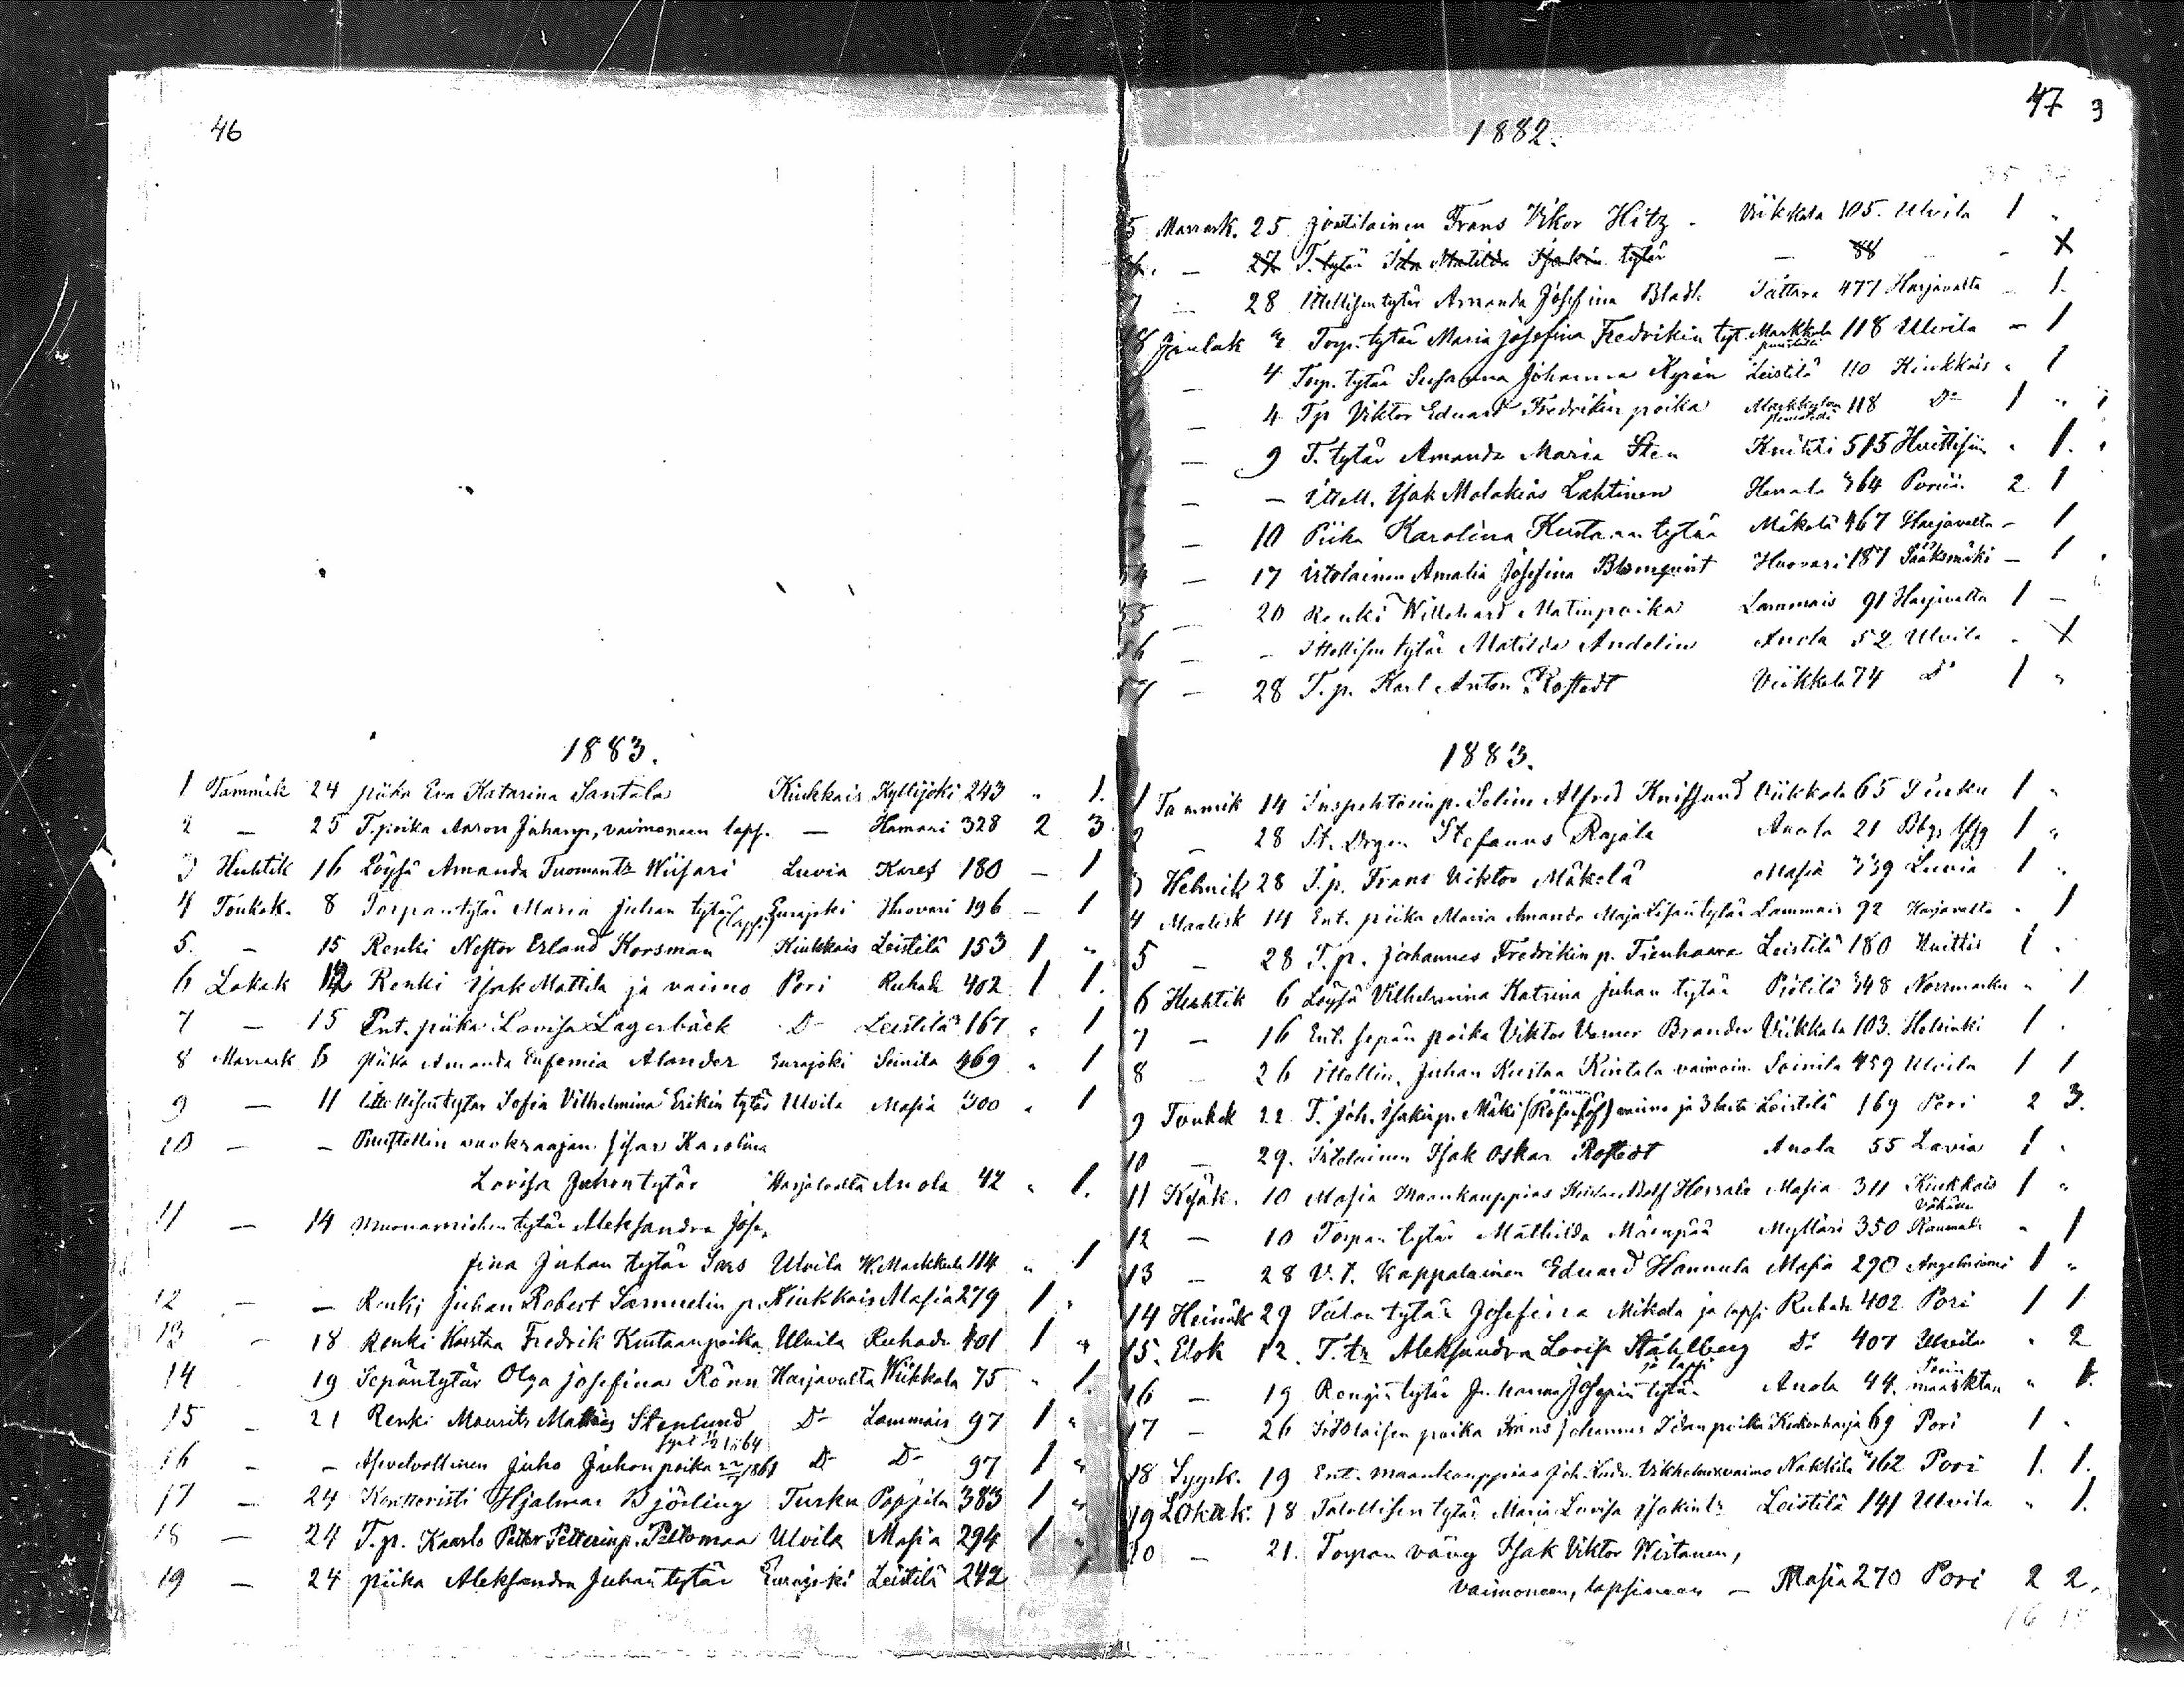 46
1883.
1 Tammik 24 piika Eva Katarina Santala Kiukkais Kyllijoki 243 „ 1.
2 — 25 T.poika Aaron Juhanp, vaimoneen laps. — Hamari 328 2 3
3 Huhtik 16 Löysä Amanda Tuomantr Wiisari Luvia Kares 180 — 1
4 Toukok. 8 Torpantytär Maria Juhan tytär (lapsi) Eurajoki Huovari 196 — 1
5. - 15 Renki Nestor Erland Korsman Kiukkais Leistilä 153 1 „
6 Lokak 12 Renki Isak Mattila ja vaimo Pori Ruhade 402 1 1.
7 — 15 Ent. piika Lovisa Lagerbäck Do Leistilä 167 „ 1
8 Marrask 6 piika Amanda Eufemia Alander Eurajoki Soinila 469 „ 1
9 — 11 Ittellisentytär Sofia Vilhelmina Erikin tytär Ulvila Masia 300 „ 1
10 — — Puustellin vuokraajan sisar Karolina
Lovisa Juhontytär Harjavalta Anola 42 „ 1.
11 — 14 muonarenkin tytär Aleksandra Jose-
fina Juhan tytär Sars Ulvila W.Markkula 114 „ 1
12 — — Renki Juhan Robert Samuelin p. Kiukkais Masia 279 1 „
13 - 18 Renki Kustaa Fredrik Kustaanpoika Ulvila Ruhade 401 1 „
14 - 19 Sepäntytär Olga Josefina Rönn Harjavalta Wiikkala 75 „ 1.
15 - 21 Renki Maurits Mattias Stenlund Do Lammais 97 1 „
16 - - Asevelvollinen Juho Juhonpoika Do Do 97 1 „
17 - 24 Konttoristi Hjalmar Björling Turku Pappila 383 1 „
18 — 24 T.p. Kaarlo Petter Petterinp. Peltomaa Ulvila Masia 294 1 „
19 — 24 piika Aleksandra Juhan tytär Eurajoki Leistilä 242 1
47 3
1882.
5 Marrask. 25 Frans Vikor Hitz - Viikkala 105. Ulvila 1 „
— 27 T. tytär Ida Matilda Isakin tytär — 88 - X
7 — 28 Ittellisen tytär Amanda Josefina Bladh Tattara 477 Harjavalta — 1.
8 Joulak Torp. tytär Maria Josefina Fredrikin tyt. Markkula puustelli 118 Ulvila — 1
— 4 Torp. tytär Susanna Johanna Kyrön Leistilä 110 Kiukkais „ 1
— 4 Tp Viktor Eduard Fredrikin poika Markkulan puustelli 118 Do 1 „
— 9 T. tytär Amanda Maria Sten Knihti 515 Huittisiin „ 1.
— — Ittell. Isak Malakias Lahtinen Herrala 364 Poriin 2 1
— 10 Piika Karolina Kustaan tytär Mäkelä 467 Harjavalta — 1
— 17 Itsolainen Amalia Josefina Blomqvist Huovari 187 Sääksmäki — 1
55 — 20 Renki Willehard Matinpoika Lammais 91 Harjavalta 1 —
56 — - Ittellisen tytär Matilda Andelin Anola 52 Ulvila - X
57 — 28 T.p. Karl Anton Rostedt Viikkala 74 Do 1 „
1883.
1 Tammik 14 Inspehtorin p. Selim Alfred Viikkala 65 Turku 1 „
2 - 28 Stefanus Rajala Anola 21 1 „
3 Helmik 28 T.p. Frans Viktor Mäkelä Masia 339 Luvia 1 „
4 Maalisk 14 Ent. piika Maria Amanda Maja Lisan tytär Lammais 92 Harjavalta „ 1
5 - 28 T.p. Johannes Fredrikin p. Tienhaara Leistilä 180 Huittis 1 „
6 Huhtik 6 Löysä Vilhelmina Katrina Juhan tytär Pyölilä 348 Norrmarku „ 1
7 — 16 Ent. sepän poika Viktor Verner Brander Viikkala 103. Helsinki 1 .
8 - 26 Ittellin. Juhan Kustaa Rintala vaimoin. Soinila 459 Ulvila 1 1
9 Toukok 22 T. Joh. Isakin p. Mäki vaimo ja 3 lasta Leistilä 169 Pori 2 3.
10 — 29. Itsolainen Isak Oskar Rostedt Anola 55 Lavia 1 „
11 Kesäk. 10 Masia Maankauppias Adolf Herrala Masia 311 Kiukkais 1 „
12 — 10 Torpan tytär Mathilda Mäenpää Mylläri 350 Raumalle „ 1
13 — 28 V.t. Kappalainen Eduard Hannula Masia 290 Angelniemi 1 „
14 Heinäk 29 Talon tytär Josefina Mikola ja lapsi Ruhade 402 Pori 1 1
15. Elok 12. T. tr Aleksandra Lovisa Ståhlberg ja lapsi Do 407 Ulvila „ 2
16 — 19 Rengin tytär Johanna Josepin tytär Anola 44. Porin maasktan „ 1.
17 — 26 Itsolaisen poika Frans Johannes Idan poika Kukonharja 69 Pori 1 .
18 Syysk. 19 Ent. maankauppias Joh. vaimo Nakkila 462 Pori 1. 1.
19 Lokak. 18 Talollisen tytär Maria Lovisa Isakintr Leistilä 141 Ulvila „ 1.
20 — 21. Torpan vävy Isak Viktor Wirtanen,
vaimoneen, lapsineen — Masia 270 Pori 2 2.
16 18